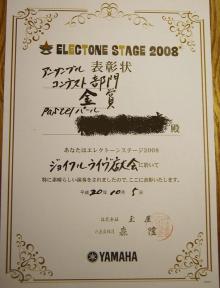 ELECTONE STAGE 2008
表彰状
アンサンブル
コンテスト部門
金賞
パール
殿
あなたはエレクトーンステージ2008
ジョイフルライヴ大会に於いて
特に素晴らしい演奏をされましたので、ここに表彰いたします。
平成20年10月5日
株式会社
YAMAHA